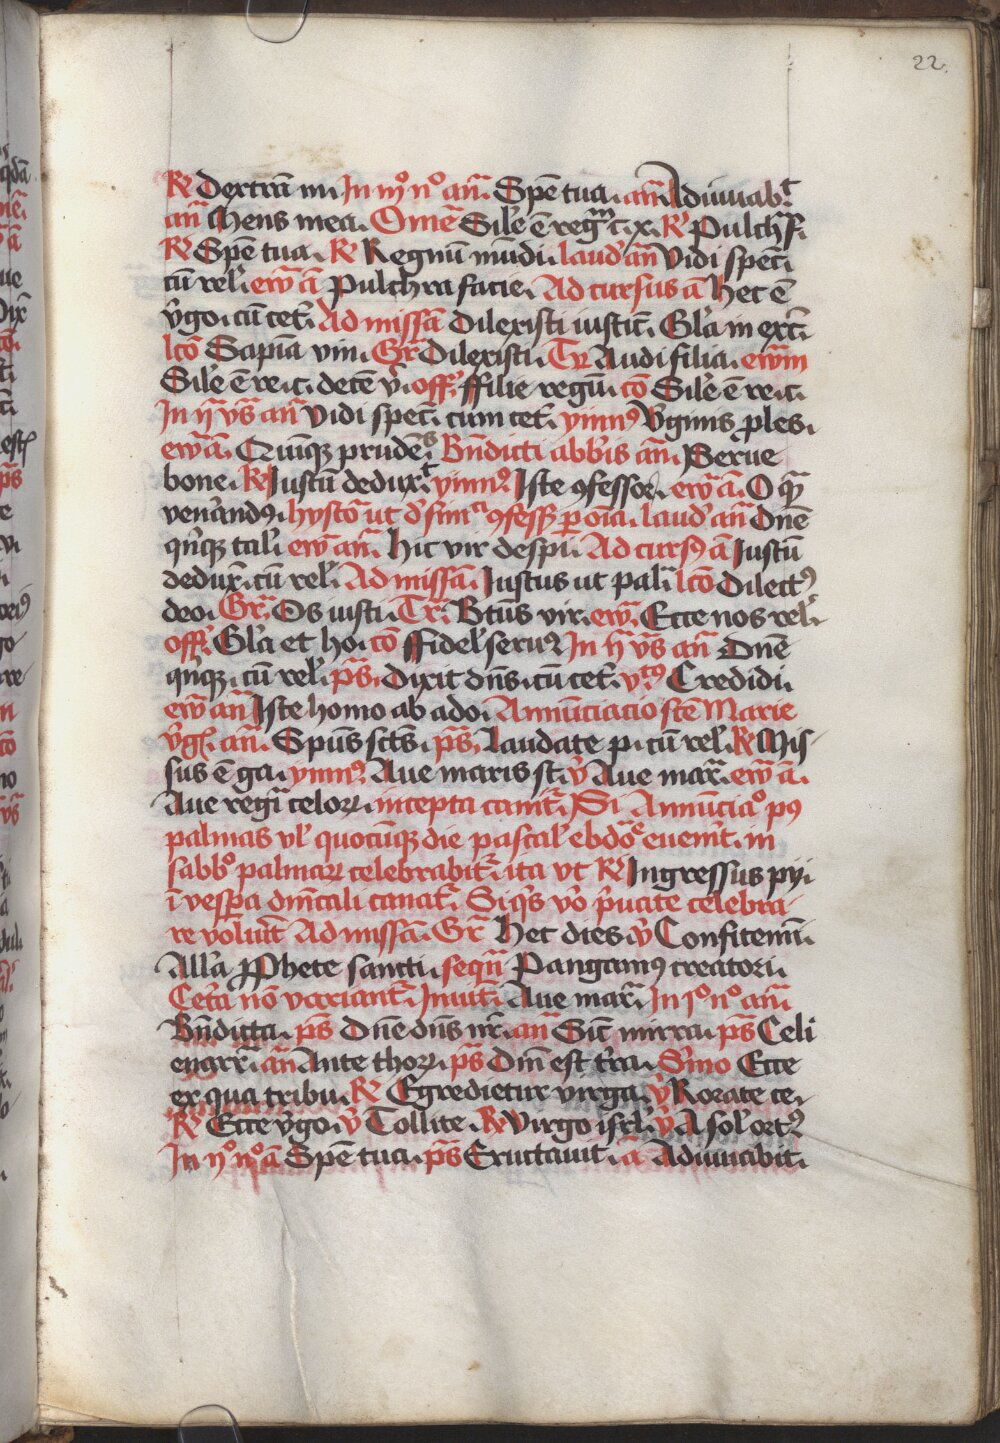 22.
R̃ Dextrā m. In ıȷ̊ n̊ añ. Spē tua. añ. Adiuuab.ͭ
añ Mens mea. Omē Sił'e ē regᷓ c̄. x. R̃ Pulch f.
R̃ Spē tua. R̃ Regnū mūdi. laud' añ Vidi speč.
cū rel'. ew̄ ā pulchra facie. Ad cursus ā hec ē
v̓go. cū cet̄. Ad missā Dilexisti iustic̄. Gl'a in exc̄.
lc̄o Sapīa vin. Gr̄ Dilexisti. Tr̄ Audi filia. ew̄m
Sil'e ē re. c. decē v̓. off. ffilie regū. cō Sil'e ē re. c.
In ıȷ v̄s añ Vidi speč. cum cet̄. ymn⁹ V̓ginis ꝓles.
ew̄ ā. Quinqꝫ prudē͛s Bn̄dicti abb̓is añ. Serue
bone. R̃ Iustū dedux.ͭ ymn⁹. Iste ꝯfessor. ew̄ ā. O qᷓ
ven̓and⁹. hysto ut d' sim̄ ꝯfess̄ ꝑ oīa. laud' añ Dn̄e
qn̓qꝫ tal'. ew̄ añ. hic vir despi. Ad curs⁹ ā Iustū
dedux̄. cū rel'. Ad missā. Iustus ut pal̄. lc̄o Dilect⁹
deo. Gr̄. Os iusti. Tr̄. Btūs vir. ew̄. Ecce nos rel'.
off. Gl'a et ho. cō ffidel' seruꝰ In ıȷ v̄s añ Dn̄e
qn̓qꝫ. cū rel'. p̄s. Dixit dn̄s. cū cet̄. vᵗ⁹ Credidi.
ew̄ añ Iste homo ab ado. Annūciacio scē Marie
v̓gl'. añ. Spūs sct̄s. p̄s. Laudate p. cū rel'. R̃ Mis
sus ē ga. ymn⁹. Aue maris st̄. v̓ Aue mar̄. ew̄ ā.
Aue regīa celoꝝ. incepta canit̄. Si Annūciac̊ pꝰ
palmas vl' quocūqꝫ die pascal' ebdōͤ euen̓it. in
sabb̊ palmaꝝ celebrabit̄. ita vt R̃ Ingressus py.
ī vesꝑa dn̄icali canat̄. Si qͥs v̊o p̓uate celebra
re volu̓it Ad missā. Gr̄ hec dies. v̓ Confitemī.
All'a ꝓphete sancti. seqn̄ Pangam⁹ creatori.
Cet̓a nō variant̄. Inuit̄. Aue mar̄. In ı̊ n̊ añ
Bn̄dicta. p̄s Dn̄e dn̄s nr̄. añ Sic̄ mirra. p̄s Celi
enarr̄. añ Ante thoꝝ. p̄s Dn̄i est t̓ra. S̓mo Ecce
ex qua tribu. R̃ Egredietur virga. v̓ Rorate ce.
R̃ Ecce v̓go. v̓ Tollite. R̃ Virgo isrl'. v̓ A sol' ort⁹
In ıȷ̊ n̊ ā Spē tua. p̄s Eructauit. ā. Adiuuabit.